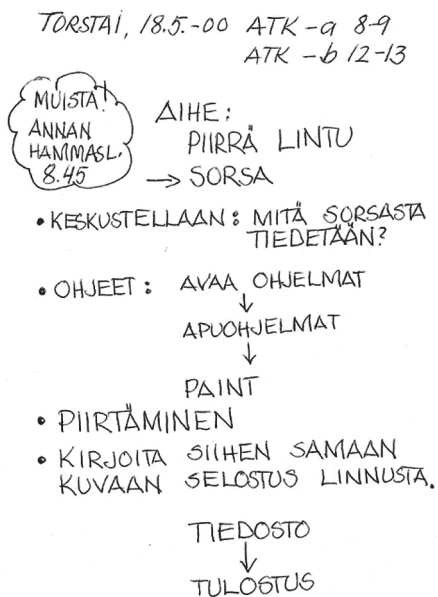 TORSTAI, 18.5.-00 ATK-a 8-9
ATK-b 12-13
MUISTA!
ANNAN
HAMMASL.
8.45
AIHE:
PIIRRÄ LINTU
→ SORSA
• KESKUSTELLAAN: MITÄ SORSASTA
TIEDETÄÄN?
• OHJEET: AVAA OHJELMAT
↓
APUOHJELMAT
↓
PAINT
• PIIRTÄMINEN
• KIRJOITA SIIHEN SAMAAN
KUVAAN SELOSTUS LINNUSTA.
TIEDOSTO
↓
TULOSTUS